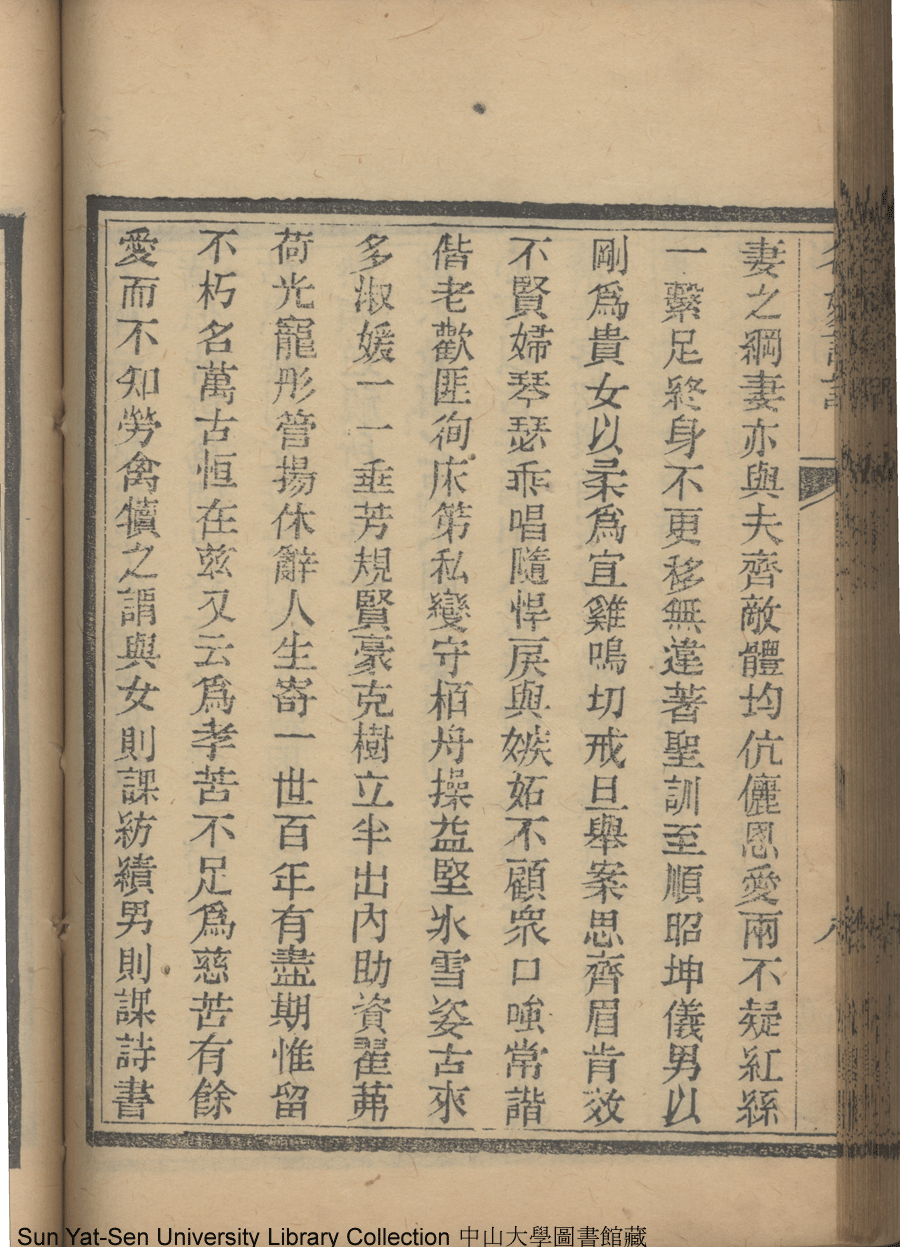 妻之綱妻亦與夫齊敵體均伉儷恩愛兩不疑紅絲
一繫足終身不更移無違著聖訓至順昭坤儀男以
剛爲貴女以柔爲宜雞鳴切戒旦舉案思齊眉肯效
不賢婦琴瑟乖唱隨悍戾與嫉妬不顧衆口嗤常諧
偕老歡匪徇床笫私變守栢舟操益堅氷雪姿古來
多淑媛一一垂芳規賢豪克樹立半出內助資翟茀
荷光寵彤管揚休辭人生寄一世百年有盡期惟留
不朽名萬古恒在茲又云爲孝苦不足爲慈苦有餘
愛而不知勞禽犢之謂與女則課紡績男則課詩書
Sun Yat-Sen University Library Collection 中山大學圖書館藏